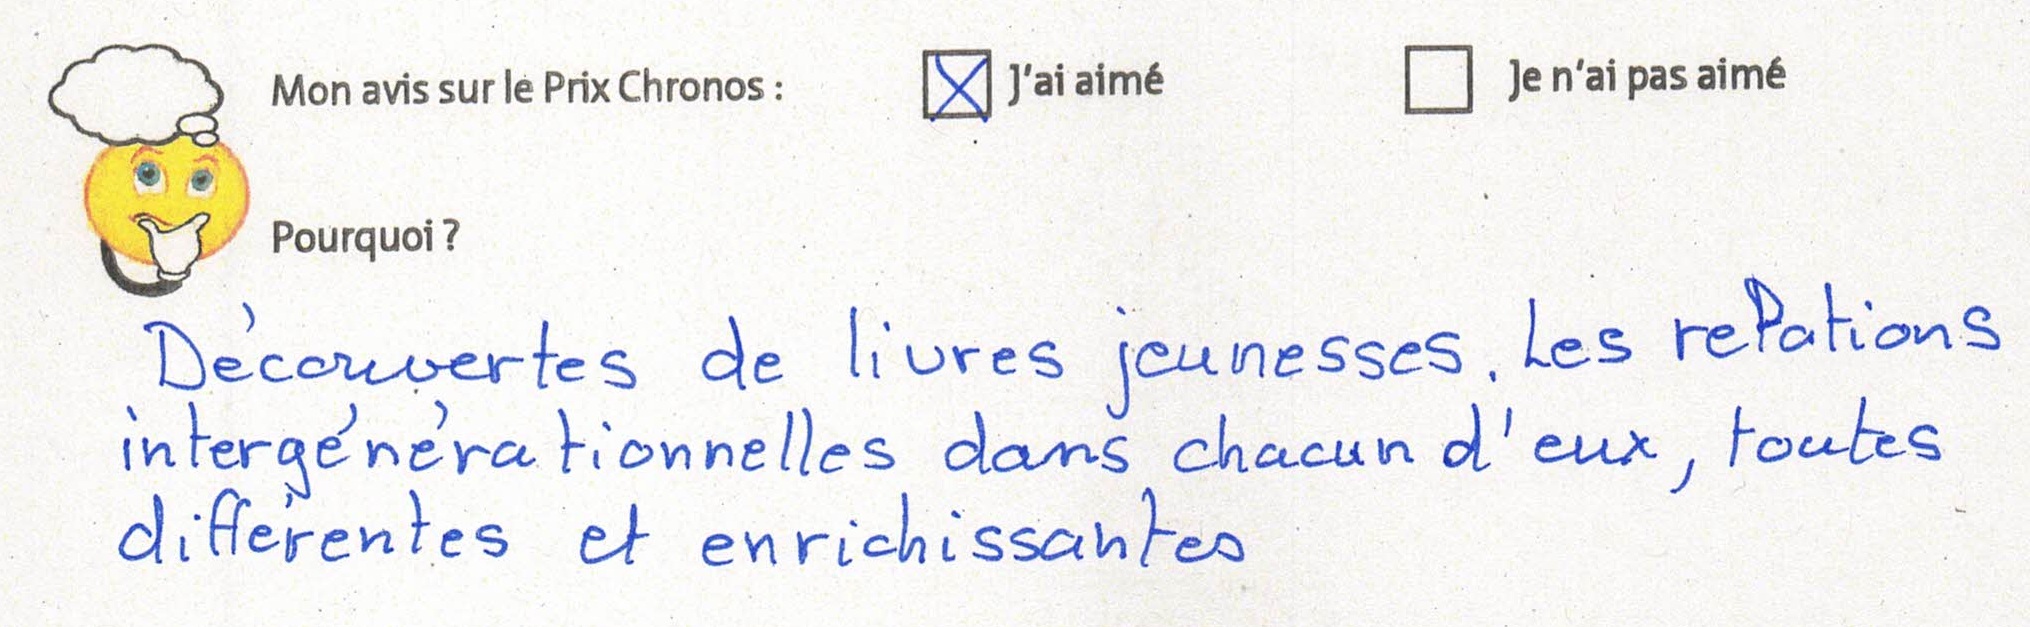 Mon avis sur le Prix Chronos : J'ai aimé Je n'ai pas aimé
Pourquoi ?
Découvertes de livres jeunesses. Les relations
intergénérationnelles dans chacun d'eux, toutes
différentes et enrichissantes